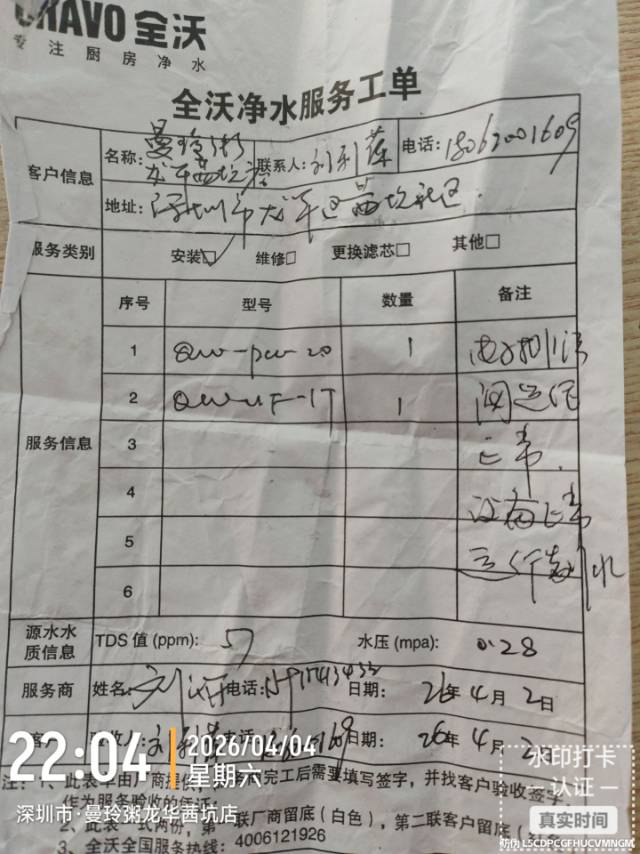 CRAVO 全沃
专注厨房净水
全沃净水服务工单
客户信息
名称: 曼玲粥 龙华西坑店
联系人: 刘利萍
电话: 18062001609
地址: 深圳市龙华区西坑社区
服务类别 安装☑ 维修□ 更换滤芯□ 其他□
服务信息
序号 型号 数量 备注
1 QW-pw-20 1
2 QW-UF-1T 1
3 正常.
4 设备正常
5
6
源水水质信息 TDS 值 (ppm): 57 水压 (mpa): 0.28
服务商 姓名: 电话: 日期: 26年4月2日
日期: 26年4月2
注: 1、此表单由厂商提供, 完工后需要填写签字, 并找客户验收签字,
作为服务验收的凭证;
2、此表一式两份, 第一联厂商留底 (白色), 第二联客户留底
3、全沃全国服务热线: 4006121926
22:04 2026/04/04
星期六
深圳市·曼玲粥龙华西坑店
水印打卡
认证
真实时间
防伪 L5CDPCGFHUCVMNGM